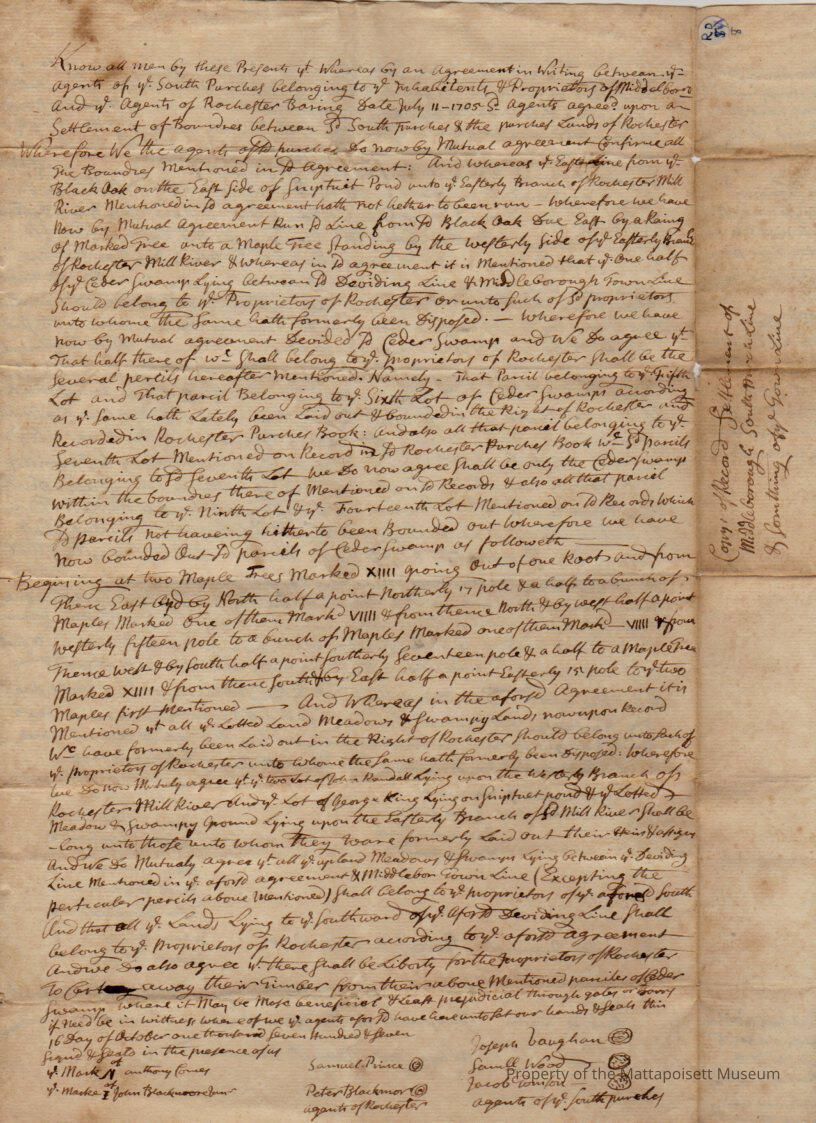 Know all men by these Presents yt Whereas by an Agreement in Writing between ye
Agents of ye South Purches belonging to ye Inhabitents & Proprietors of Middelboro
And ye Agents of Rochester Baring Date July 11-1705 Sd Agents agree? upon an
Settlement of Boundres between Sd South Purches & the purches Lands of Rochester
Wherefore We the agents of Sd purches Do now by Mutual agreement Confirme all
The Boundres Mentioned in Sd Agreement: And whereas ye East Line from ye
Black Oak on the East Side of Sniptuit Pond unto ye Easterly Branch of Rochester Mill
River Mentioned in Sd agreement hath not hether to been run - Wherefore we have
Now by Mutual Agreement Run Sd Line from Sd Black Oak Due East by a Raing
of Marked Tree unto a Maple Tree Standing by the westerly Side of ye Easterly Branch
of Rochester Mill River & whereas in Sd agreement it is Mentioned that ye One half
of ye Ceder Swamp Lying between Sd Deviding Line & Middleborough Town Line
Should belong to ye Proprietors of Rochester or unto Such of Sd proprietors
unto whome the Same hath formerly been Disposed: — Wherefore we have
now by Mutual agreement Devided Sd Ceder Swamp and We Do agree yt
That half there of wc Shall belong to ye proprietors of Rochester Shall be the
Several percils hereafter Mentioned Namely - That Parcil belonging to ye Fifth
Lot and That parcil Belonging to ye Sixth Lot of Ceder Swamps acording
as ye Same hath Lately been Laid out & bounded in the Right of Rochester and
Recorded in Rochester Purches Book: and also all that parcel belonging to ye
Seventh Lot Mentioned on Record in Sd Rochester Purches Book wc Sd Parcils
Belonging to Sd Seventh Lot we Do now agree Shall be only the Ceder Swamp
within the boundres there of Mentioned on Sd Records & also all that parcil
Belonging to ye Ninth Lot & ye Fourteenth Lot Mentioned on Sd Records Which
Sd parcils not haveing hitherto been Bounded out Wherefore we have
Now bounded Out Sd parcils of Ceder Swamp as followeth
Begining at two Maple Trees Marked XIIII going Out of one Root and from
Thence East and by North half a point Northerly 17 pole & a half to a bunch of
Maples Marked One of them Markd VIIII & from thence North & by west half a point
Westerly fifteen pole to a bunch of Maples Marked one of them Markd VIIII & from
Thence West & by South half a point Southerly Seventeen pole & a half to a Maple Tree
Marked XIIII & from thence South & by East half a point Easterly 15 pole to ye two
Maples first Mentioned — And Whereas in the aforsd Agreement it is
Mentioned yt all ye Lotted Land Meadows & Swampy Lands now upon Record
Wc have formerly been Laid out in the Right of Rochester Should belong unto Such of
ye proprietors of Rochester unto whome the Same hath formerly been Disposed: Wherefore
we do now Mutuly agree yt ye two Lot of John Randall Lying upon the Westerly Branch of
Rochester Mill River And ye Lot of George King Lying on Sniptuet pond & ye Lotted
Meadow & Swampy Ground Lying upon the Easterly Branch of Sd Mill River Shall be
-long unto those unto whom they ware formerly Laid out their Heirs & assigns
And we Do Mutualy agree yt all ye upland Meadows & Swamps Lying between ye Deviding
Line Mentioned in ye aforsd agreement & Middlebor Town Line (Excepting the
perticuler percils above Mentioned) Shall belong to ye proprietors of ye South
And that all ye Lands Lying to ye Southward of ye Aforsd Deviding Line Shall
belong to ye Proprietors of Rochester acording to ye aforsd agreement
And we Do also agree yt there Shall be Liberty for the Proprietors of Rochester
To away their Timber from their above Mentioned parciles of Ceder
Swamp where it May be Most beneficial & Least prejudicial through gates or barrs
if Need be in Witness where of we ye agents aforsd have here unto Set our hands & Seals this
16 Day of October one thousand Seven Hundred & Seven
Signd & Seald in the presence of us
ye Mark of anthony Comes
ye Marke of John Blackmore Junr
Samuel Prince
Peter Blackmore
agents of Rochester
Joseph Vaughan
Samll Wood
Jacob Tomson
agents of ye South purches
Copy of Record Settlement of
Middleborough South purch Line
& Somthing of ye Town Line
Property of the Mattapoisett Museum